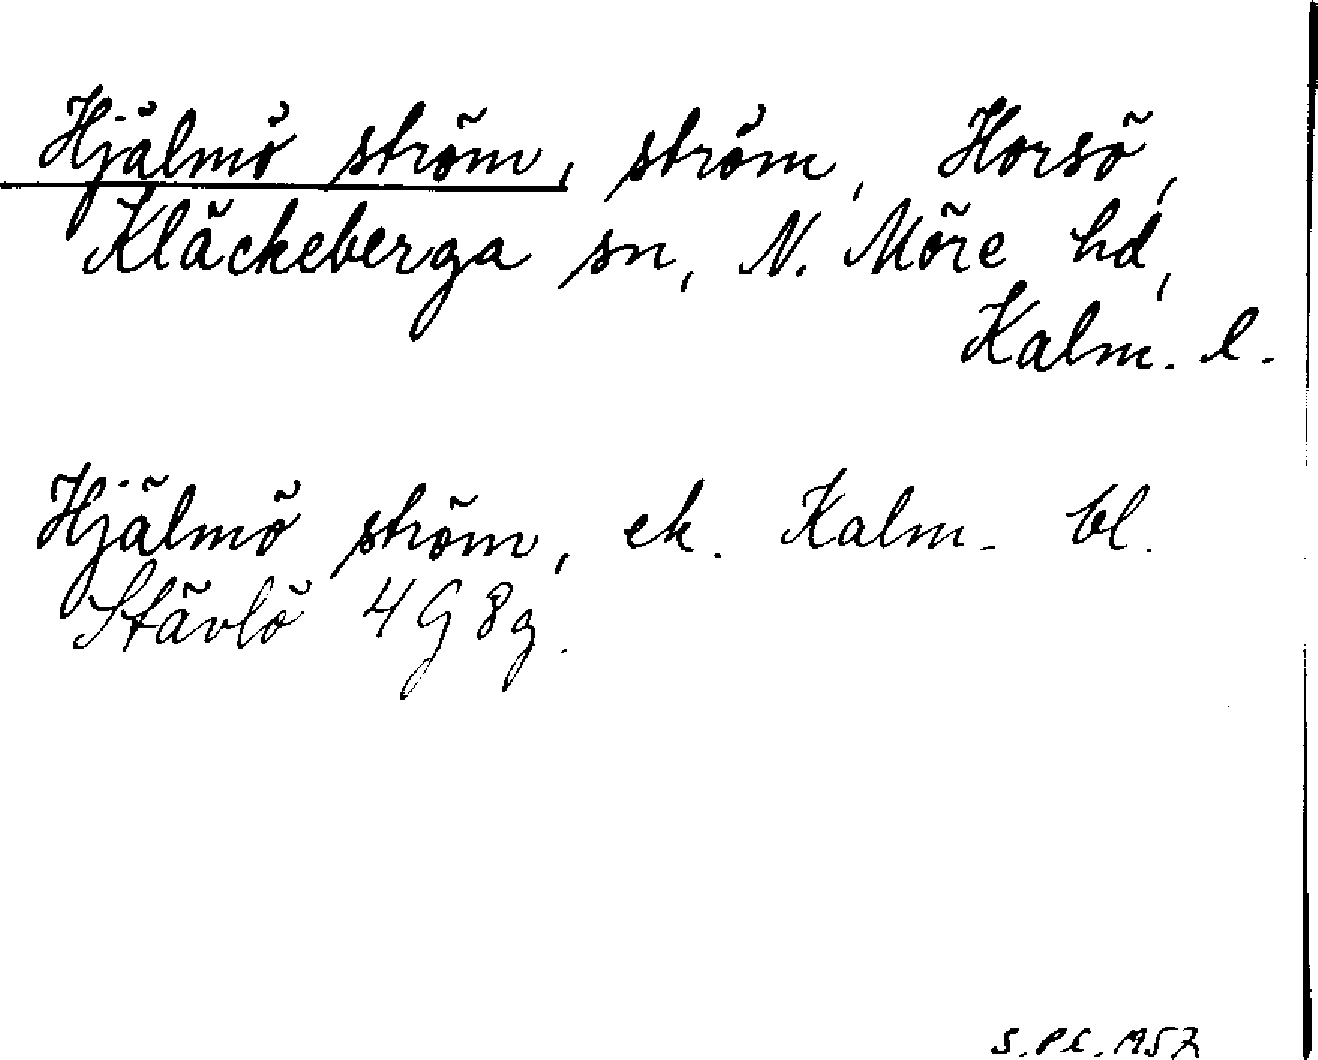 Hjälmö ström, ström, Horsö,
Kläckeberga sn, N. Möre hd,
Kalm. l.
Hjälmö ström, ek. Kalm. bl.
Stävlö 4G8g.
S.Pl. 1957